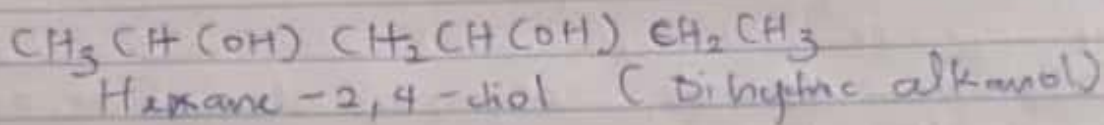 CH3 CH (OH) CH2 CH (OH) CH2 CH3
Hexane - 2, 4 - diol ( Dihydric alkanol)